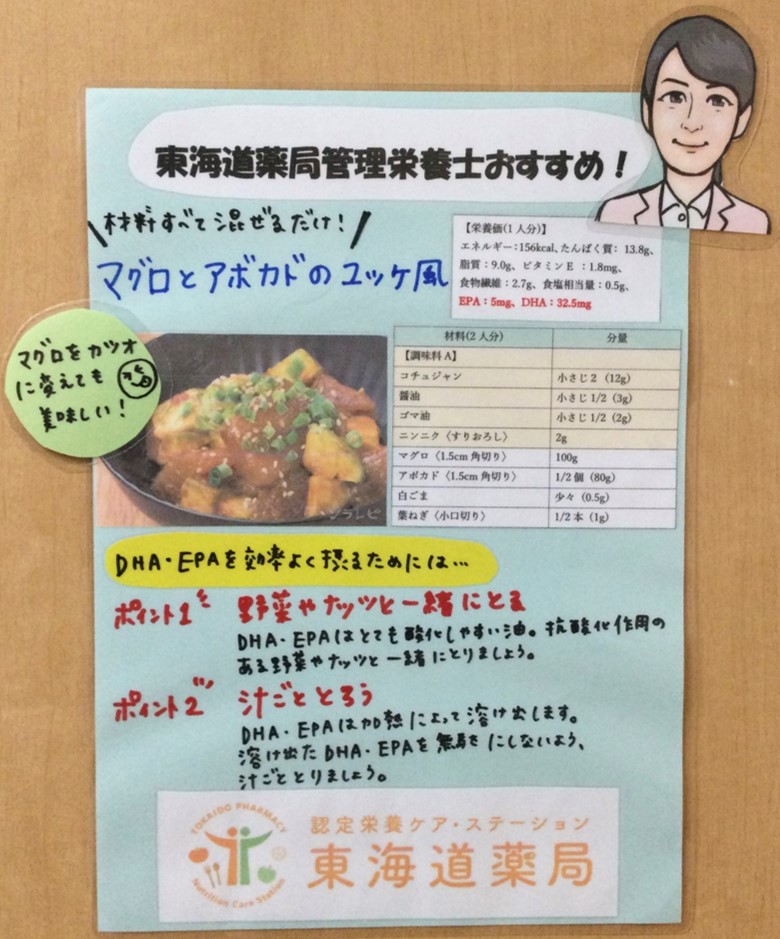 東海道薬局管理栄養士おすすめ！
材料すべて混ぜるだけ！
マグロとアボカドのユッケ風
【栄養価(1人分)】
エネルギー：156kcal、たんぱく質： 13.8g、
脂質：9.0g、ビタミンE ：1.8mg、
食物繊維：2.7g、食塩相当量：0.5g、
EPA：5mg、DHA：32.5mg
マグロをカツオ
に変えても
美味しい！
材料(2人分) 分量
【調味料A】
コチュジャン 小さじ2（12g）
醤油 小さじ1/2（3g）
ゴマ油 小さじ1/2（2g）
ニンニク〈すりおろし〉 2g
マグロ〈1.5cm角切り〉 100g
アボカド〈1.5cm角切り〉 1/2個（80g）
白ごま 少々（0.5g）
葉ねぎ〈小口切り〉 1/2本（1g）
DHA・EPAを効率よく摂るためには…
ポイント1 野菜やナッツと一緒にとる
DHA・EPAはとても酸化しやすい油。抗酸化作用の
ある野菜やナッツと一緒にとりましょう。
ポイント2 汁ごととろう
DHA・EPAは加熱によって溶け出します。
溶け出たDHA・EPAを無駄にしないよう、
汁ごととりましょう。
TOKAIDO PHARMACY
Nutrition Care Station
認定栄養ケア・ステーション
東海道薬局